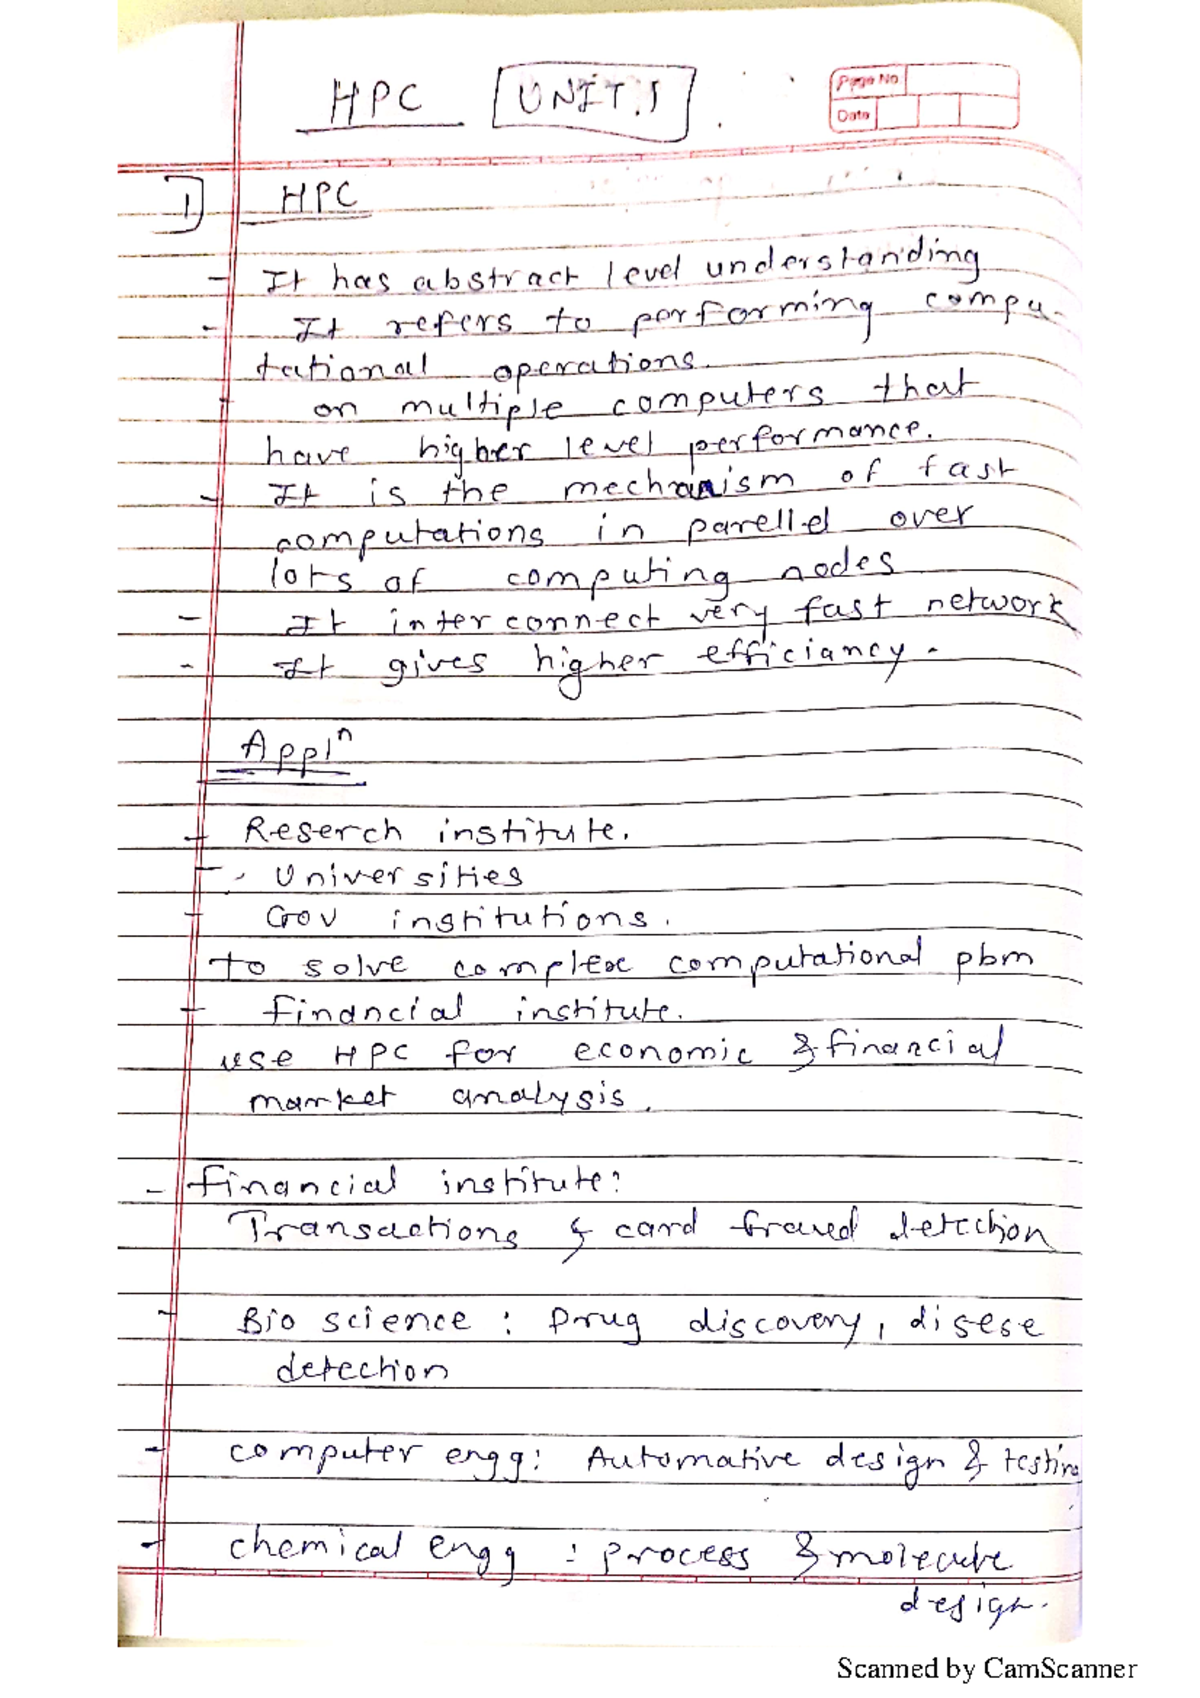 HPC UNIT.1
Page No
Date
1] HPC
- It has abstract level understanding
- It refers to performing compu-
tational operations.
- on multiple computers that
have higher level performance.
- It is the mechanism of fast
computations in parelled over
lots of computing nodes
- It interconnect very fast network
- It gives higher efficiancy.
Applⁿ
- Reserch institute.
- Universities
- Gov institutions.
to solve complex computational pbm
- financial institute.
use HPC for economic & financial
market analysis.
- financial institute:
Transactions & card fraued detection
- Bio science : Drug discovery, disese
detection
- computer engg: Automative design & testing
- chemical engg : process & molecule
design.
Scanned by CamScanner